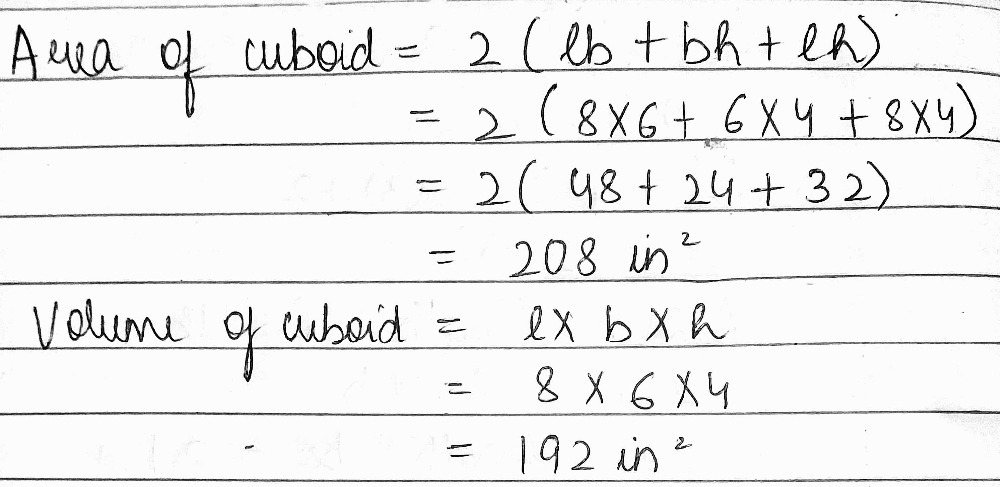 Area of cuboid = 2 ( lb + bh + lh)
= 2 ( 8×6 + 6×4 + 8×4)
= 2( 48 + 24 + 32)
= 208 in²
Volume of cuboid = l× b × h
= 8 × 6 ×4
= 192 in²